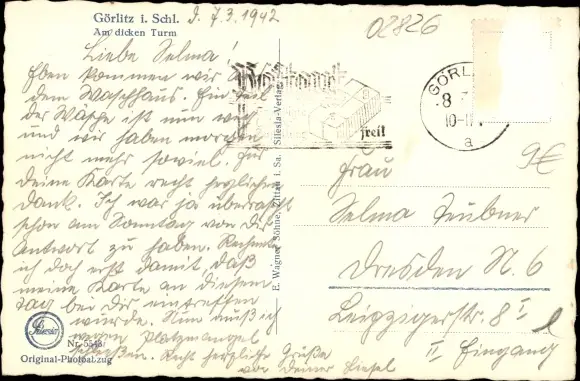 Görlitz i. Schl.
Am dicken Turm
d. 7.3.1942
02826
Liebe Selma!
Eben kommen wir aus
dem Waschhaus. Ein Teil
der Wäsche ist nun weg
und wir haben morgen
nicht mehr soviel. Für
Deine Karte recht herzlichen
Dank. Ich war ja überrascht
schon am Sonntag von dir
Antwort zu haben. Rechnete
ich doch erst damit, daß
meine Karte an diesem
Tag bei Dir eintreffen
würde. Nun muß ich
wegen Platzmangel
schließen. Recht herzliche Grüße
von Deiner Liesel
Silesia
Nr. 5548
Original-Photoabzug
E. Wagner Söhne, Zittau i. Sa. Silesia-Verlag
GÖRLI
8
10-11
a
9€
Frau
Selma Teubner
Dresden N. 6
Leipzigerstr. 8 I
II Eingang